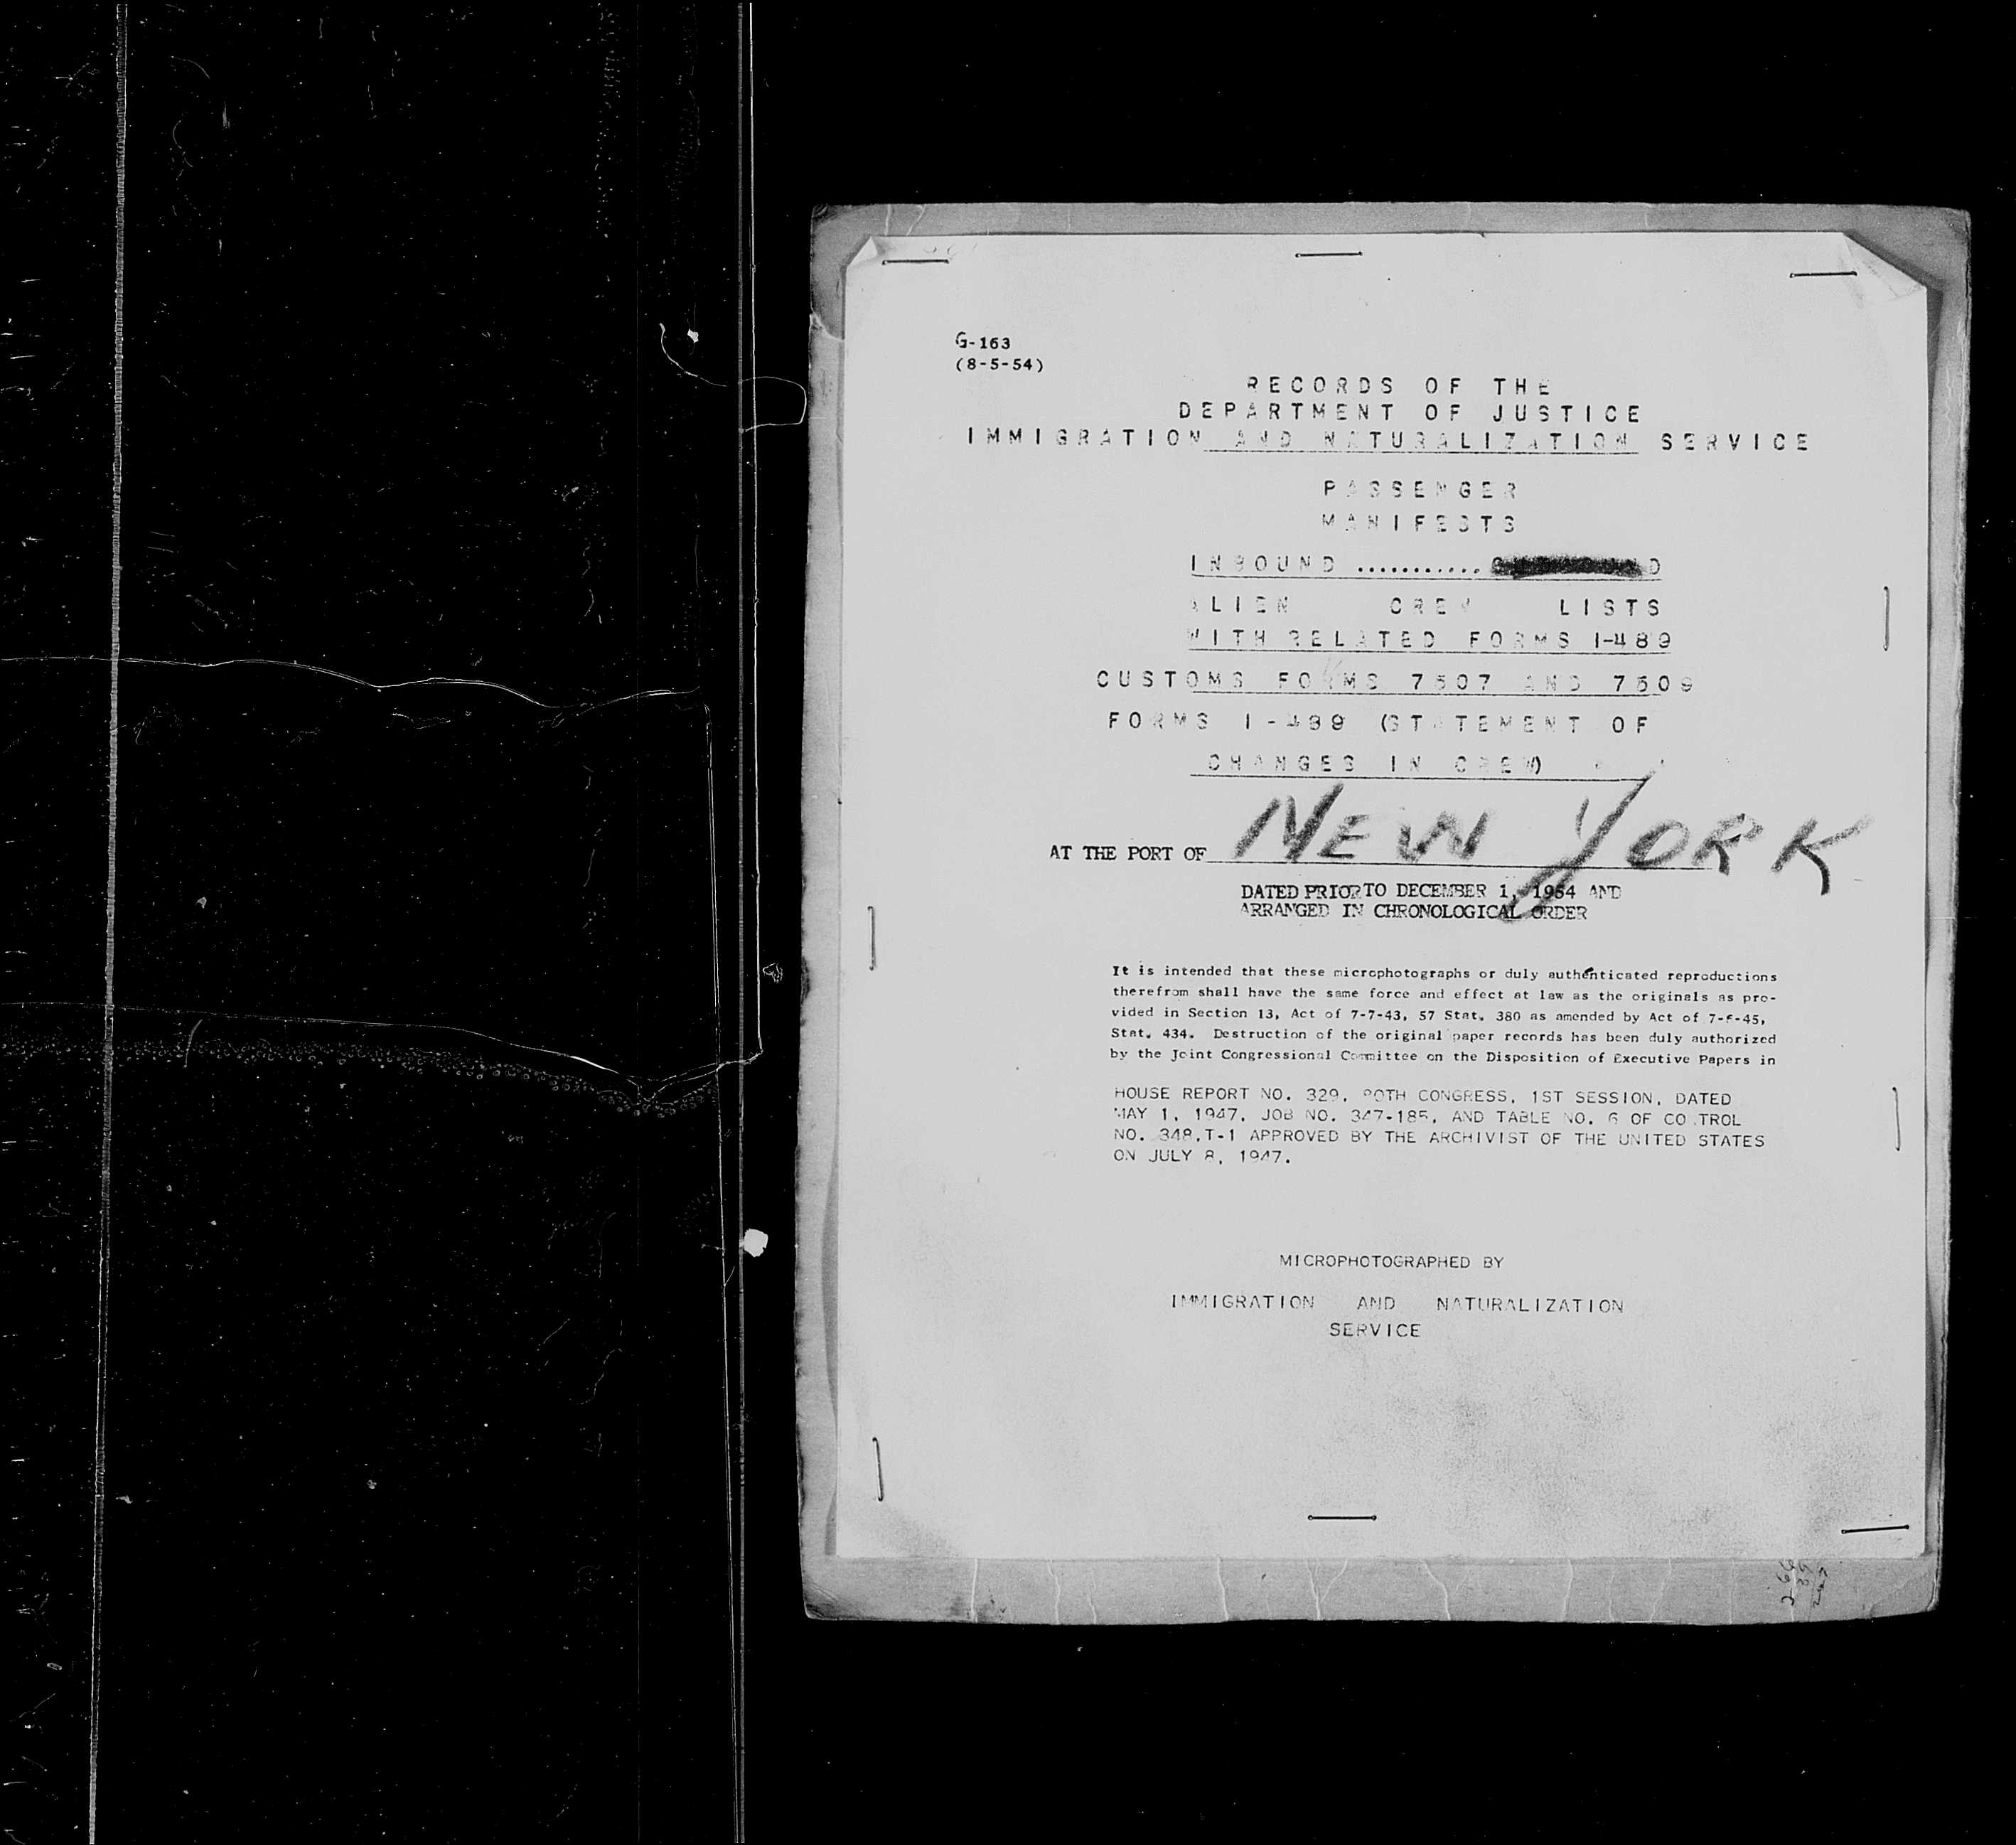 G-163
(8-5-54)
RECORDS OF THE
DEPARTMENT OF JUSTICE
IMMIGRATION AND NATURALIZATION SERVICE
PASSENGER
MANIFESTS
INBOUND ...........
ALIEN CREW LISTS
WITH RELATED FORMS I-489
CUSTOMS FORMS 7507 AND 7509
FORMS I-489 (STATEMENT OF
CHANGES IN CREW)
AT THE PORT OF NEW YORK
DATED PRIOR TO DECEMBER 1, 1954 AND
ARRANGED IN CHRONOLOGICAL ORDER
It is intended that these microphotographs or duly authenticated reproductions
therefrom shall have the same force and effect at law as the originals as pro-
vided in Section 13, Act of 7-7-43, 57 Stat. 380 as amended by Act of 7-6-45,
Stat. 434. Destruction of the original paper records has been duly authorized
by the Joint Congressional Committee on the Disposition of Executive Papers in
HOUSE REPORT NO. 329, 80TH CONGRESS, 1ST SESSION, DATED
MAY 1, 1947, JOB NO. 347-185, AND TABLE NO. 6 OF CONTROL
NO. 348.T-1 APPROVED BY THE ARCHIVIST OF THE UNITED STATES
ON JULY 8, 1947.
MICROPHOTOGRAPHED BY
IMMIGRATION AND NATURALIZATION
SERVICE